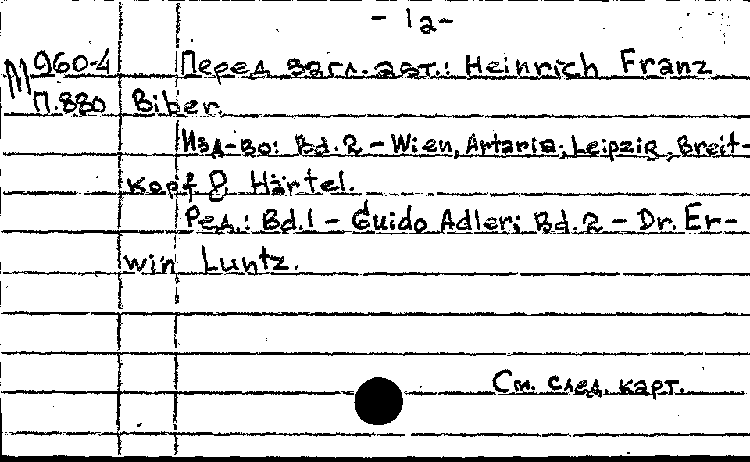 - 1a -
М 960-4 Перед загл. авт.: Heinrich Franz
П.880 Biber.
Изд-во: Bd. 2 - Wien, Artaria; Leipzig, Breit-
kopf & Härtel.
Ред.: Bd. 1 - Guido Adler; Bd. 2 - Dr. Er-
win Luntz.
См. след. карт.